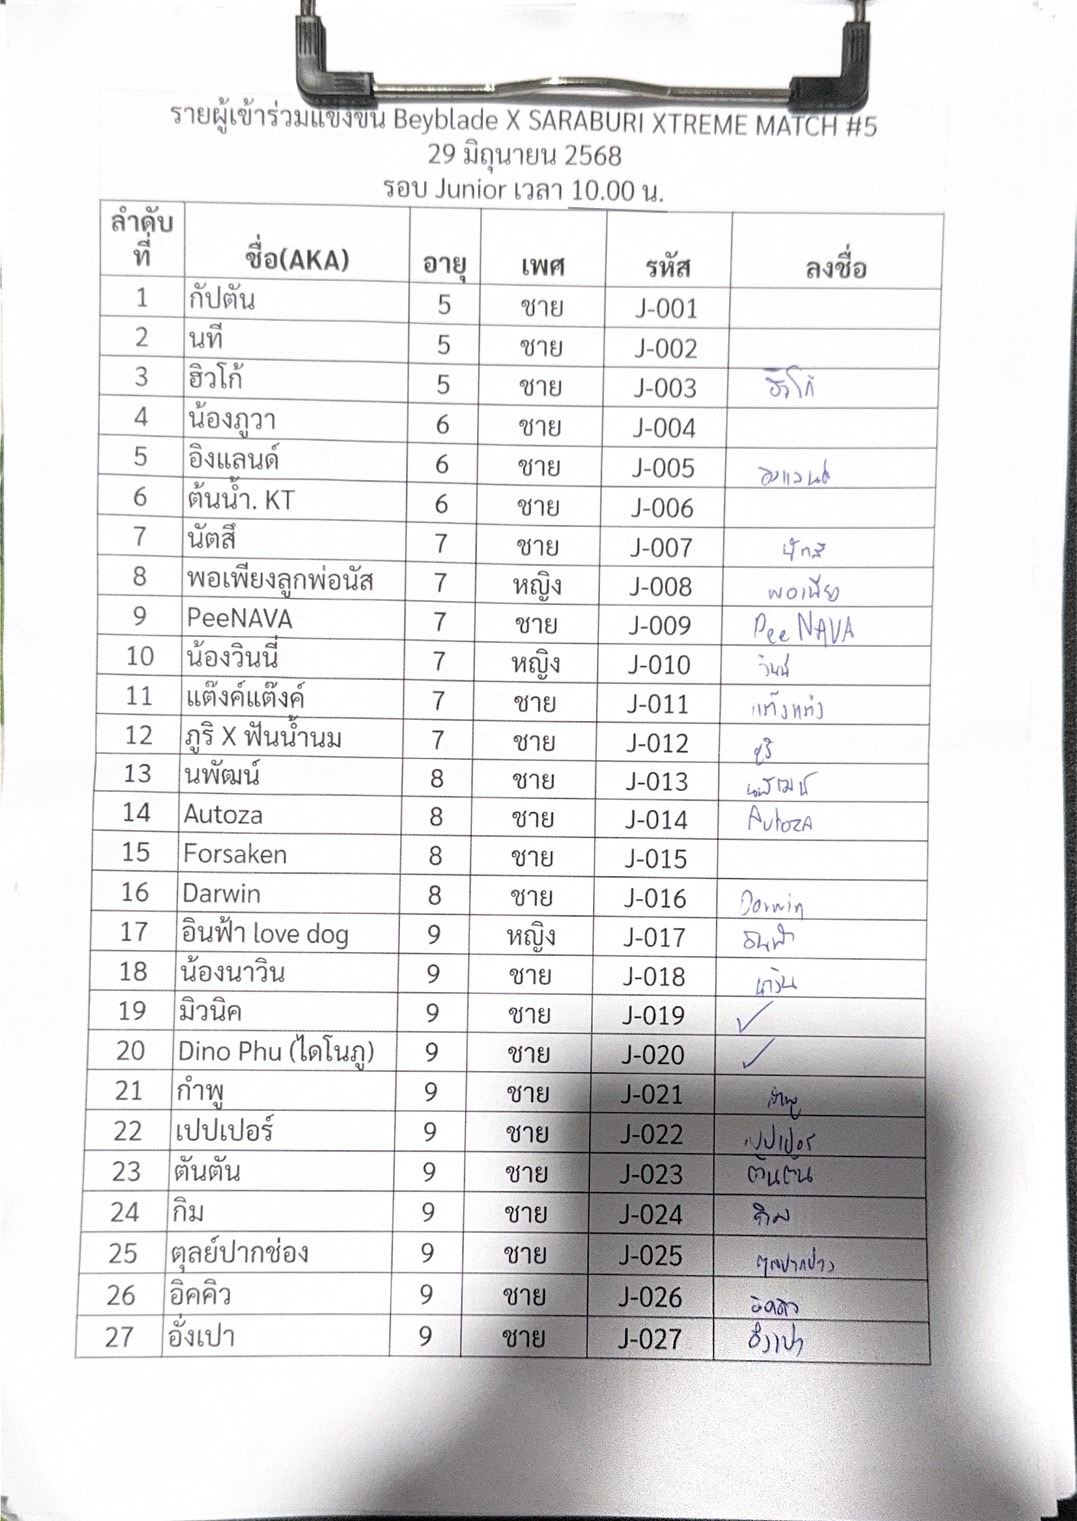 รายผู้เข้าร่วมแข่งขัน Beyblade X SARABURI XTREME MATCH #5
29 มิถุนายน 2568
รอบ Junior เวลา 10.00 น.
ลำดับที่ ชื่อ(AKA) อายุ เพศ รหัส ลงชื่อ
1 กัปตัน 5 ชาย J-001
2 นที 5 ชาย J-002
3 ฮิวโก้ 5 ชาย J-003 ฮิวโก้
4 น้องภูวา 6 ชาย J-004
5 อิงแลนด์ 6 ชาย J-005 อิงแลนด์
6 ต้นน้ำ. KT 6 ชาย J-006
7 นัตสึ 7 ชาย J-007
8 พอเพียงลูกพ่อนัส 7 หญิง J-008 พอเพียง
9 PeeNAVA 7 ชาย J-009 Pee NAVA
10 น้องวินนี่ 7 หญิง J-010
11 แต๊งค์แต๊งค์ 7 ชาย J-011
12 ภูริ X ฟันน้ำนม 7 ชาย J-012
13 นพัฒน์ 8 ชาย J-013 นพัฒน์
14 Autoza 8 ชาย J-014 AutozA
15 Forsaken 8 ชาย J-015
16 Darwin 8 ชาย J-016 Darwin
17 อินฟ้า love dog 9 หญิง J-017 อินฟ้า
18 น้องนาวิน 9 ชาย J-018 นาวิน
19 มิวนิค 9 ชาย J-019 ✓
20 Dino Phu (ไดโนภู) 9 ชาย J-020 ✓
21 กำพู 9 ชาย J-021 กำพู
22 เปปเปอร์ 9 ชาย J-022 เปปเปอร์
23 ตันตัน 9 ชาย J-023 ตันตัน
24 กิม 9 ชาย J-024 กิม
25 ตุลย์ปากช่อง 9 ชาย J-025
26 อิคคิว 9 ชาย J-026 อิคคิว
27 อั่งเปา 9 ชาย J-027 อั่งเปา